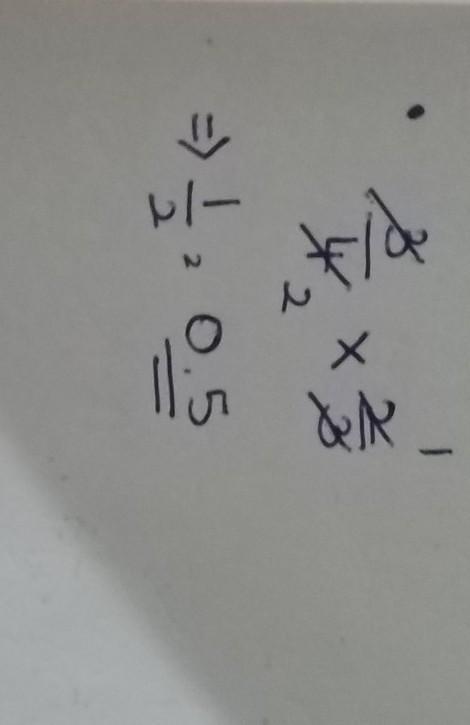 • 3/4 × 2/3 1 2
⇒ 1/2 = 0.5